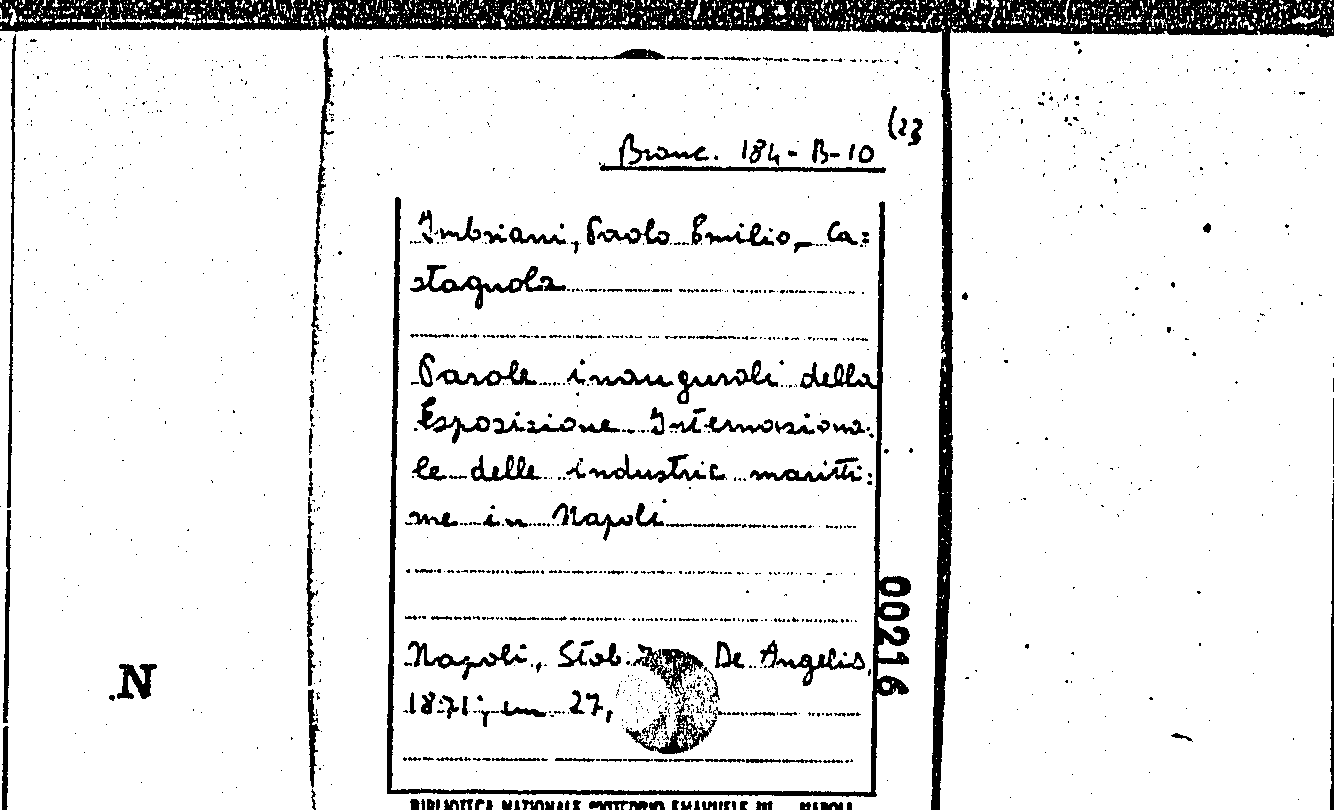 (23
Branc. 184-B-10
Imbriani, Paolo Emilio, Ca=
stagnola
Parole inaugurali della
Esposizione Internaziona=
le delle industrie maritti=
me in Napoli
00216
Napoli, Stob. De Angelis,
.N
1871; cm 27,
BIBLIOTECA NAZIONALE VITTORIO EMANUELE III - NAPOLI